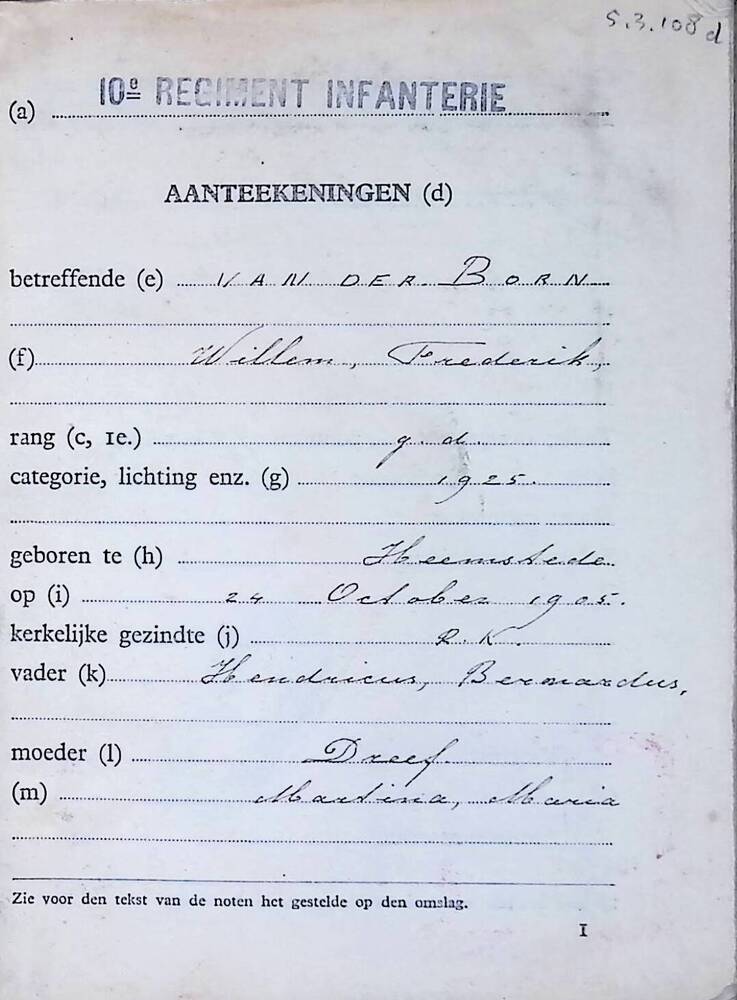 S.3.108 d
(a) 10e REGIMENT INFANTERIE
AANTEEKENINGEN (d)
betreffende (e) VAN DER BORN
(f) Willem, Frederik,
rang (c, 1e.) g. d.
categorie, lichting enz. (g) 1925.
geboren te (h) Heemstede.
op (i) 24 October 1905.
kerkelijke gezindte (j) R.K.
vader (k) Hendricus, Bernardus,
moeder (l) Dreef.
(m) Martina, Maria
Zie voor den tekst van de noten het gestelde op den omslag.
1